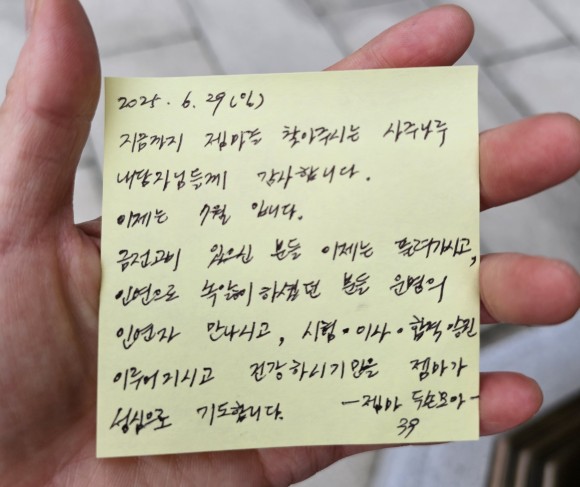 2025. 6. 29(일)
지금까지 젬마를 찾아주시는 사주나루
내담자님들께 감사합니다.
이제는 7월 입니다.
금전고비 있으신 분들 이제는 풀려가시고,
인연으로 속앓이 하셨던 분들 운명의
인연자 만나시고, 시험·이사·합격
이루어지시고 건강하시기만을 젬마가
성심으로 기도합니다. - 젬마 두손모아 -
39